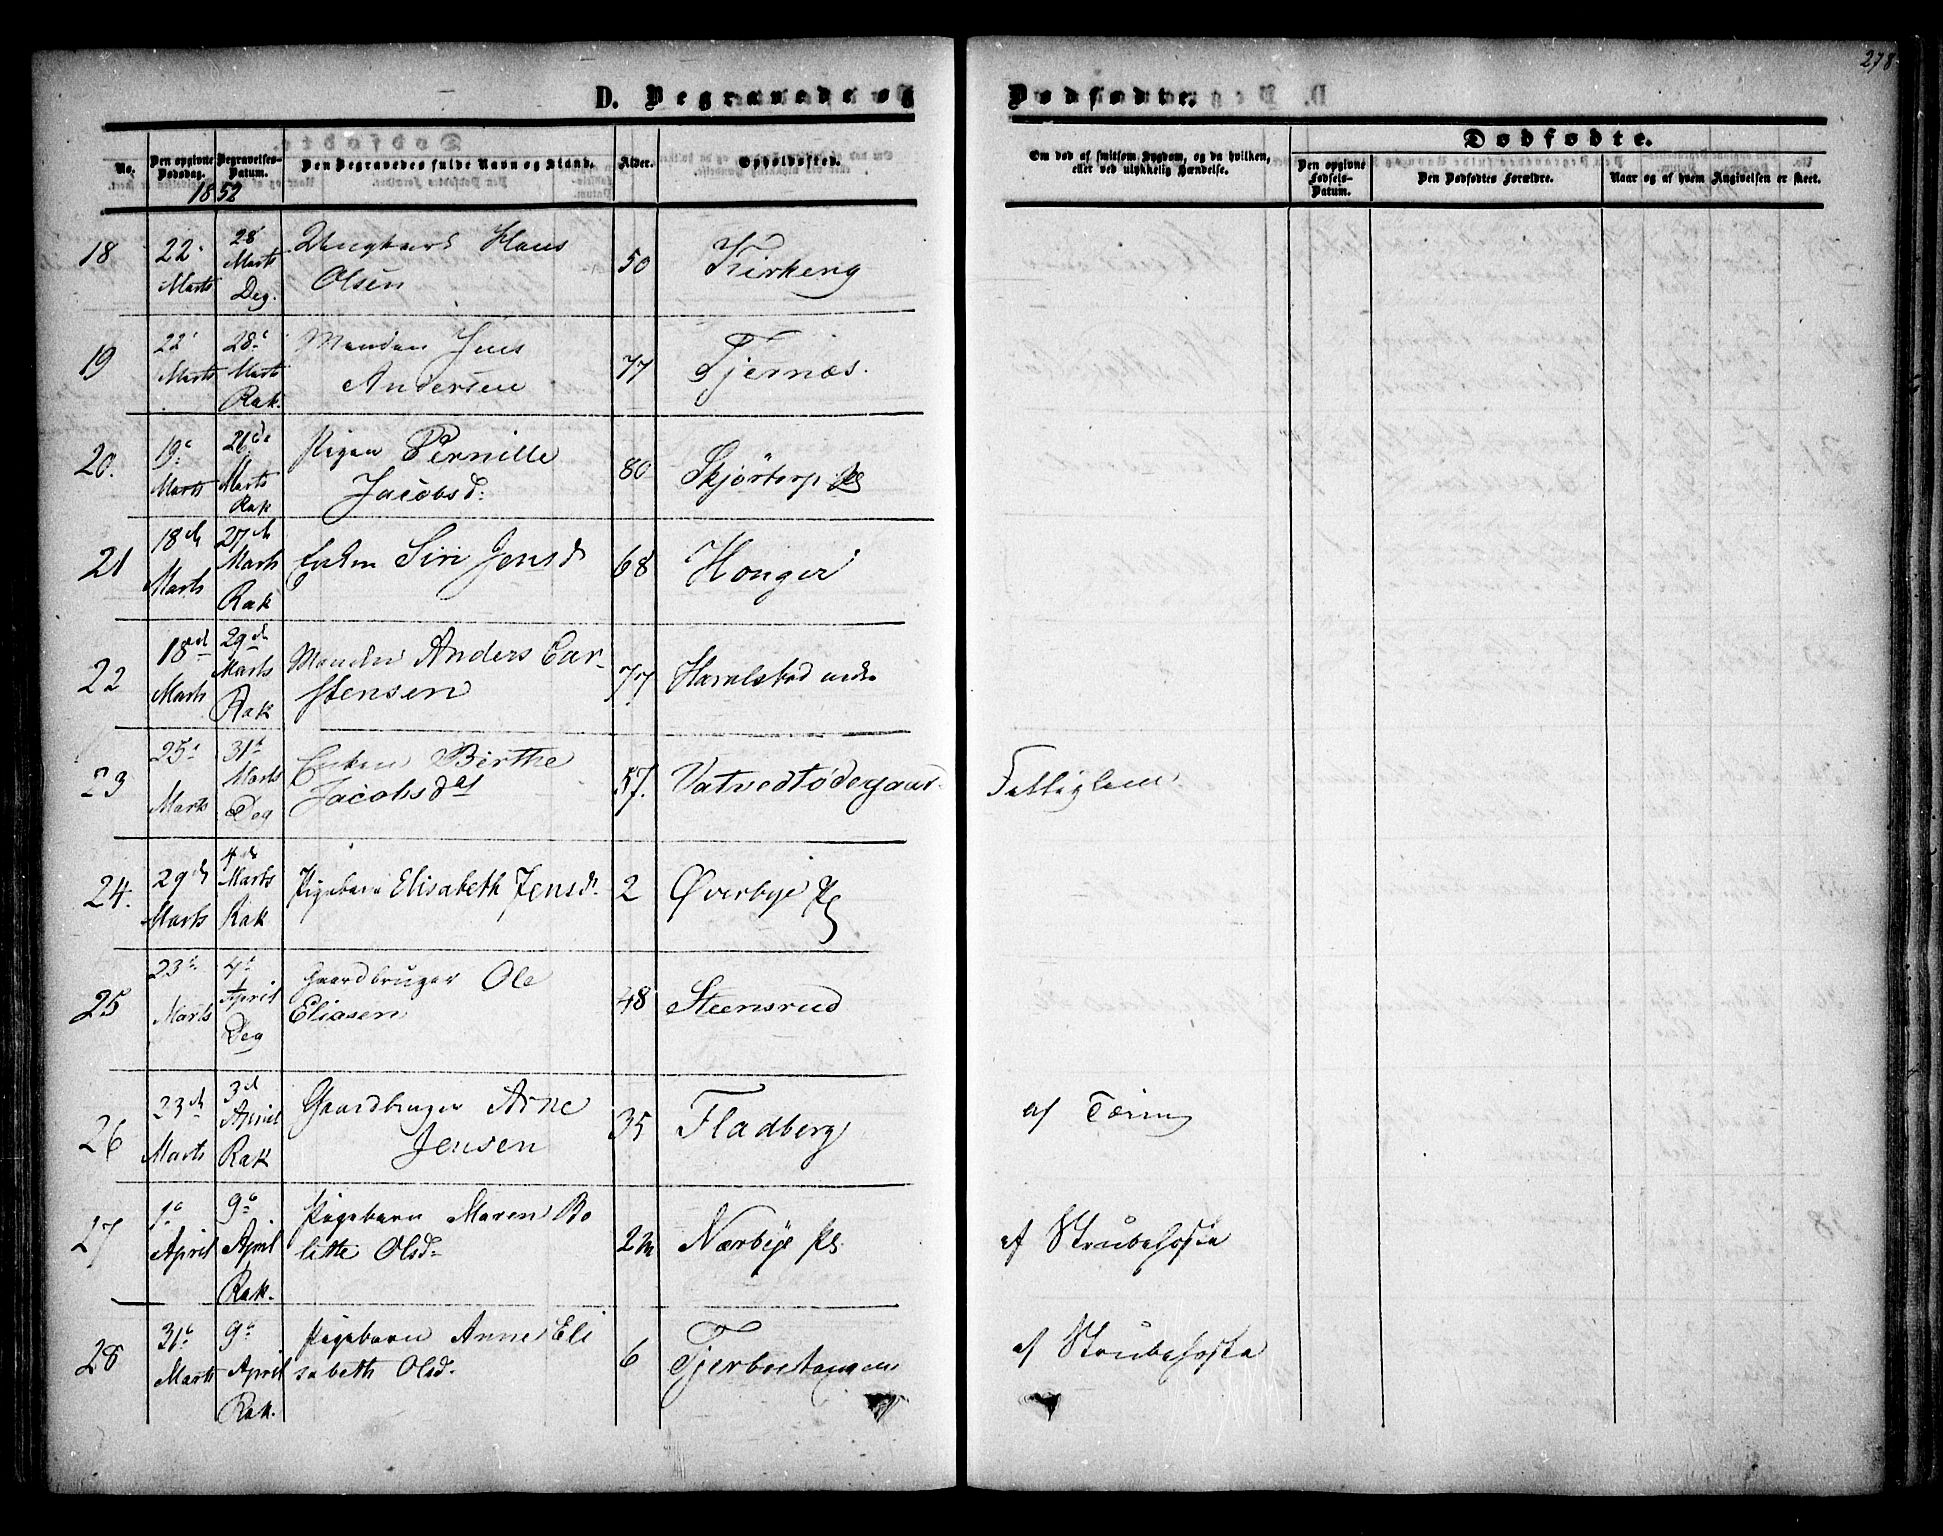 278
D. Begravede og Dødfødte.
Dødfødte.
No.
Den opgivne Dødsdag.
Begravelses-Datum.
Den Begravedes fulde Navn og Stand.
Alder.
Opholdssted.
Om død af smitsom Sygdom, og da hvilken, eller ved ulykkelig Hændelse.
Den opgivne Fødsels-Datum.
Den Dødfødtes Forældre.
Naar og af hvem Angivelsen er skeet.
1852
18 22 Marts 28 Marts Deg. Ungkarl Hans
Olsen 50 Kirkeng
19 22 Marts 28 Marts Rak. Manden Jens
Andersen 77 Tjernæs.
20. 19 Marts 26de Marts Rak Pigen Pernille
Jacobsd: 80 Skjørtorp Pl
21 18d Marts 27d Marts Rak Enken Siri Jensd 68 Honger
22 18d Marts 29d Marts Rak Manden Anders Car-
stensen 77 Harelstad nedre
23 25 Marts 31d Marts Deg Enken Birthe
Jacobsd 57. Vatvedtødegaard. Fattiglem
24. 29d Marts 4d Marts Rak Pigebarn Elisabeth Jensd. 2 Øverbye Pl
25 23d Marts 4d April Deg Gaardbruger Ole
Eliasen 48 Steensrud
26 23d Marts 3d April Rak Gaardbruger Arne
Jensen 35 Fladberg af Tæring
27 1 April 9 April Rak. Pigebarn Maren Bo
lette Olsd 2 m Nærbye Pl. af Strubehoste
28 31 Marts 9 April Rak. Pigebarn Anne Eli
sabeth Olsd. 6 Tjerbustangen af Strubehoste